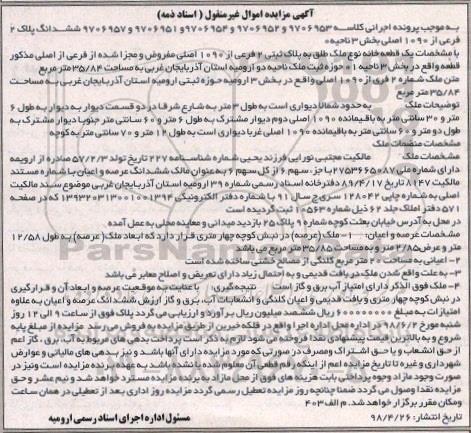 آگهی مزایده اموال غیرمنقول ( اسناد ذمه)
به موجب پرونده اجرائی کلاسه ۹۷۰۶۹۵۳ و ۹۷۰۶۹۵۲ و ۹۷۰۶۹۵۴ و ۹۷۰۶۹۵۱ و ۹۷۰۶۹۵۷ ششدانگ پلاک ۲
فرعی از ۱۰۹۰ اصلی بخش ۳ ناحیه ۰
با مشخصات یک قطعه خانه نوع ملک طلق به پلاک ثبتی ۲ فرعی از ۱۰۹۰ اصلی مفروض و مجزا شده از فرعی از اصلی مذکور
قطعه واقع در بخش ۳ ناحیه ۱ حوزه ثبت ملک ناحیه دو ارومیه استان آذربایجان غربی به مساحت ۳۵/۸۴ متر مربع
متن ملک شماره ۲ فری از ۱۰۹۰ اصلی واقع در بخش ۳ ارومیه حوزه ثبتی ارومیه استان آذربایجان غربی به مساحت
۳۵/۸۴ متر مربع
توضیحات ملک به حدود شمالا دیواری است به طول ۳ متر به شارع شرقا در دو قسمت دیوار به دیوار به طول ۶
متر و ۳۰ سانتی متر به باقیمانده ۱۰۹۰ اصلی دوم دیوار مشترک به طول ۶ متر و ۶۰ سانتی متر جنوبا دیوار مشترک به
طول دو متر و ۶۰ سانتی متر به باقیمانده ۱۰۹۰ اصلی غربا دیواری است به طول ۱۲ متر و ۷۰ سانتی متر به کوچه
مشخصات منضمات ملک
مشخصات ملک: مالکیت مجتبی نورایی فرزند یحیی شماره شناسنامه ۲۲۷ تاریخ تولد ۵۷/۲/۳ صادره از ارومیه
دارای شماره ملی ۲۷۵۳۶۶۵۰۸۷ با جز سهم ۶ از کل سهم ۶ به عنوان مالک ششدانگ عرصه و اعیان با شماره مستند
مالکیت ۸۱۴۷ تاریخ ۸۹/۴/۱۷ دفترخانه اسناد رسمی شماره ۳۹ ارومیه استان آذربایجان غربی موضوع سند مالکیت
اصلی به شماره چاپی ۱۲۸۰۴۲ سری ج سال ۹۱ با شماره دفتر الکترونیکی ۱۳۹۳۲۰۳۱۳۰۰۱۰۰۱۳۹۴ که در صفحه
۵۷۱ دفتر املاک جلد ۶۴ ذیل شماره ۱۰۵۶۳ ثبت گردیده است
در محل به آدرس خیابان بعثت کوچه شماره ۹ پلاک ۲۵ بازدید میدانی و معاینه محلی به عمل آمده
مشخصات عرصه و اعیان: ۱- ملک (عرصه) در نبش کوچه چهار متری قرار دارد که ابعاد ملک ( عرصه) به طول ۱۲/۵۸
متر و عرض ۲/۸۵ متر و به مساحت ۳۵/۸۵ متر مربع می باشد
۲- اعیانی به مساحت ۲۰ متر مربع کلنگی از مصالح خشتی ساخته شده است
۳- به علت واقع شدن ملک در بافت قدیمی و به احتمال زیاد دارای تعریض و اصلاح معابر می باشد
۴- ملک فوق الذکر دارای امتیاز آب برق و گاز است نتیجه گیری: با عنایت به موقعیت عرصه و ابعاد آن و قرارگیری
در نبش کوچه چهار متری و بافت قدیمی و اعیان کلنگی و انشعابات آب، برق و گاز ارزش ششدانگ عرصه و اعیان به علاوه
امتیازات به مبلغ ۶۰۰۰۰۰۰۰۰ ریال ششصد میلیون ریال برآورد و ارزیابی می گردد پلاک فوق از ساعت ۹ الی ۱۲ روز
شنبه مورخ ۹۸/۶/۲ در اداره اجرا واقع در فلکه خیرین از طریق مزایده به فروش می رسد مزایده از مبلغ پایه
شروع و به بالاترین قیمت پیشنهادی نقدا فروخته می شود لازم به ذکر است پرداخت بدهی های مربوطه به آب، برق، گاز اعم
از حق انشعاب و یا حق اشتراک و مصرف در صورتی که مورد مزایده دارای آنها باشد و نیز بدهی های مالیاتی و عوارض
شهرداری و غیره تا تاریخ مزایده اعم از اینکه رقم قطعی آن معلوم شده یا نشده باشد به عهده برنده مزایده است ونیز در
صورت وجود مازاد وجوه پرداختی بابت هزینه های فوق از محل مازاد به برنده مزایده مسترد خواهد شد و نیم عشر و حق
مزایده نقدا وصول می گردد ضمنا چنانچه روز مزایده تعطیل رسمی گردد مزایده روز اداری بعد از تعطیلی در همان ساعت
ومکان مقرر برگزار خواهد شد. م الف ۴۰۳
تاریخ انتشار: ۹۸/۴/۲۶ مسئول اداره اجرای اسناد رسمی ارومیه